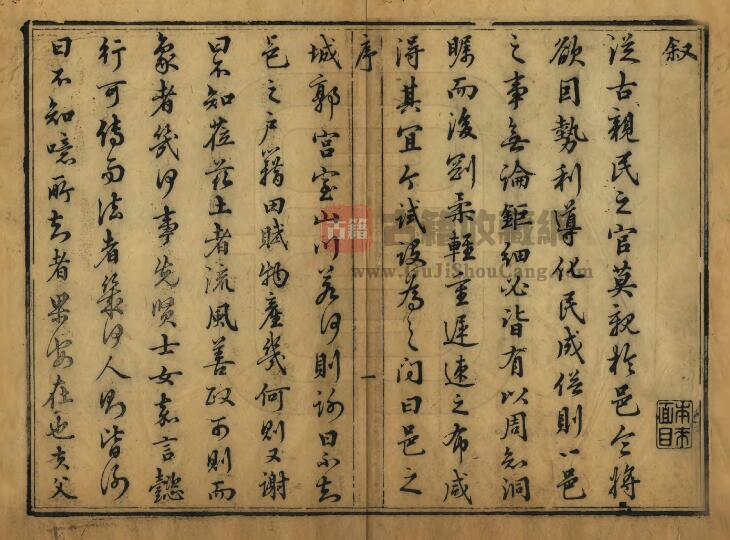 叙
從古親民之官莫親於邑令將
欲因勢利導化民成俗則一邑
之事無論鉅細必皆有以周知洞
矚而後剛柔輕重遲速之布咸
得其宜今試設為之问曰邑之
序
一
城郭宫室山川若何則謝曰不知
邑之户籍田賦物產幾何則又謝
曰不知莅茲土者流風善政可則而
象者幾何事先贤士女嘉言懿
行可傳而法者幾何人則皆謝
曰不知噫所知者果安在也夫父
本來面目
古籍
古籍收藏網
www.GuJiShouCang.com